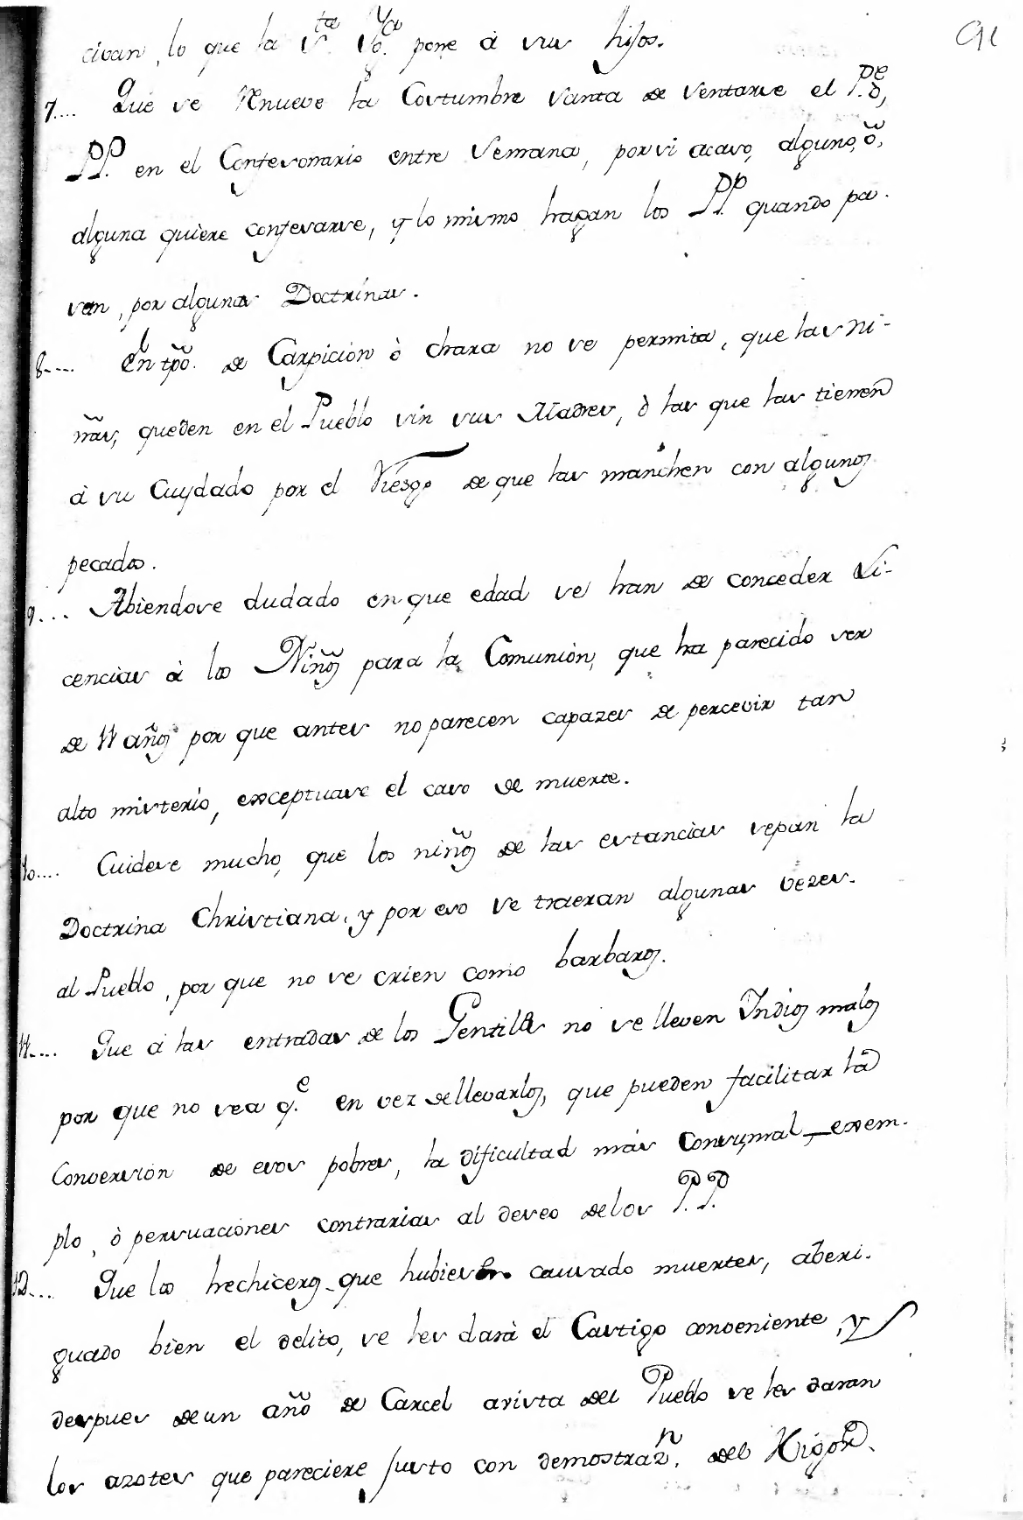 civan, lo que la S.ta Yg.ca pone à sus hijos.
91
7.... Que se renueve la Costumbre santa de sentarse el P.e ô,
PP. en el Confesonario entre semana, por si acaso, alguno, ô,
alguna quiere confesarse, y lo mismo hagan los PP. quando pa-
sen, por algunas Doctrinas.
8.... En el tpô. de Carpicion ò chara no se permita, que las ni-
ñas, queden en el Pueblo sin sus Madres, ò las que las tienen
à su Cuydado por el riesgo de que las manchen con algunos
pecados.
9... Abiendose dudado en que edad se han de conceder Li-
cencias à los Niños para la Comunion, que ha parecido ser
de 11 años por que antes no parecen capazes de percevir tan
alto misterio, exceptuase el caso de muerte.
10.... Cuidese mucho, que los niños de las estancias sepan la
Doctrina Christiana, y por eso se traeran algunas vezes
al Pueblo, por que no se crien como barbaros.
11.... Que à las entradas de los Gentiles no se lleven Indios malos
por que no sea q.e en vez de llevarlos, que pueden facilitar la
Conversion de esos pobres, la dificultad mas con su mal exem-
plo, ò persuaciones contrarias al deseo de los P.P.
12... Que los hechiceros que hubieren causado muertes, aberi-
guado bien el delito, se les darà el Castigo conveniente, y
despues de un año de Carcel a vista del Pueblo se les daran
los azotes que pareciere justo con demostraz.n del Rigor.